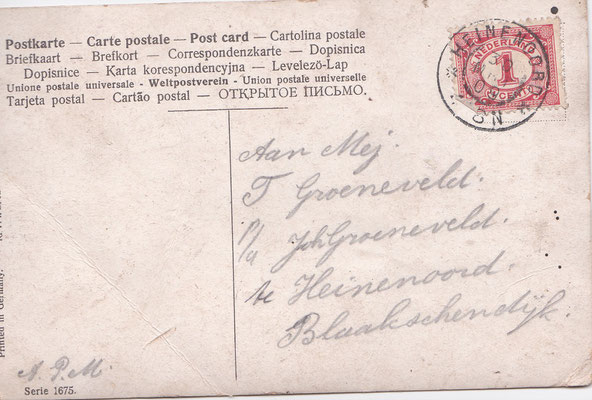 Postkarte — Carte postale — Post card — Cartolina postale
Briefkaart — Brefkort — Correspondenzkarte — Dopisnica
Dopisnice — Karta korespondencyjna — Levelező-Lap
Unione postale universale - Weltpostverein - Union postale universelle
Tarjeta postal — Cartão postal — ОТКРЫТОЕ ПИСЬМО.
HEINENOORD
NEDERLAND
1
CENT
Aan Mej.
T Groeneveld.
p/a Joh Groeneveld.
te Heinenoord.
Blaakschendijk.
Printed in Germany.
A. P. M.
Serie 1675.